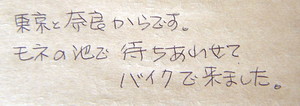 東京と奈良からです。
モネの池で 待ちあわせて
バイクで来ました。